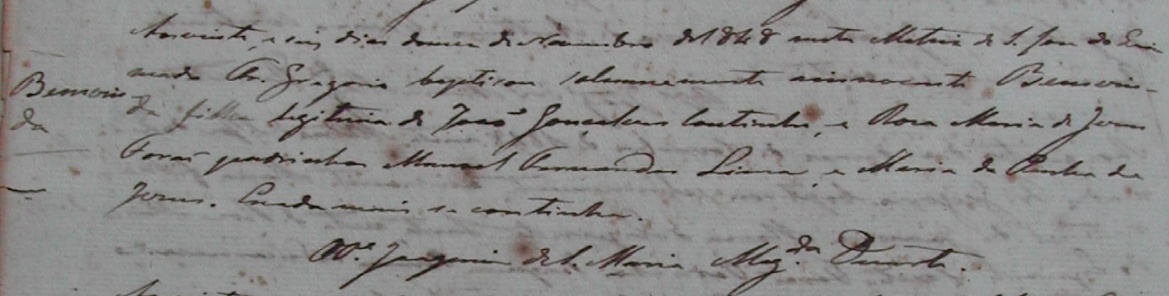 Aos vinte, e seis dias do mez de Novembro de 1848 nesta Matriz de S. Joze do
o Pe. Gregorio baptisou solemnemente a innocente Bemvin-
Bemvin
da
da filha legitima de João Gonçalves Coutinho, e Roza Maria de Jezus
Forão padrinhos Manoel Fernandes Lima, e Maria da Penha de
Jezus. E nada mais se continha.
O Vo. Joaquim de S. Maria Magda. Duarte.